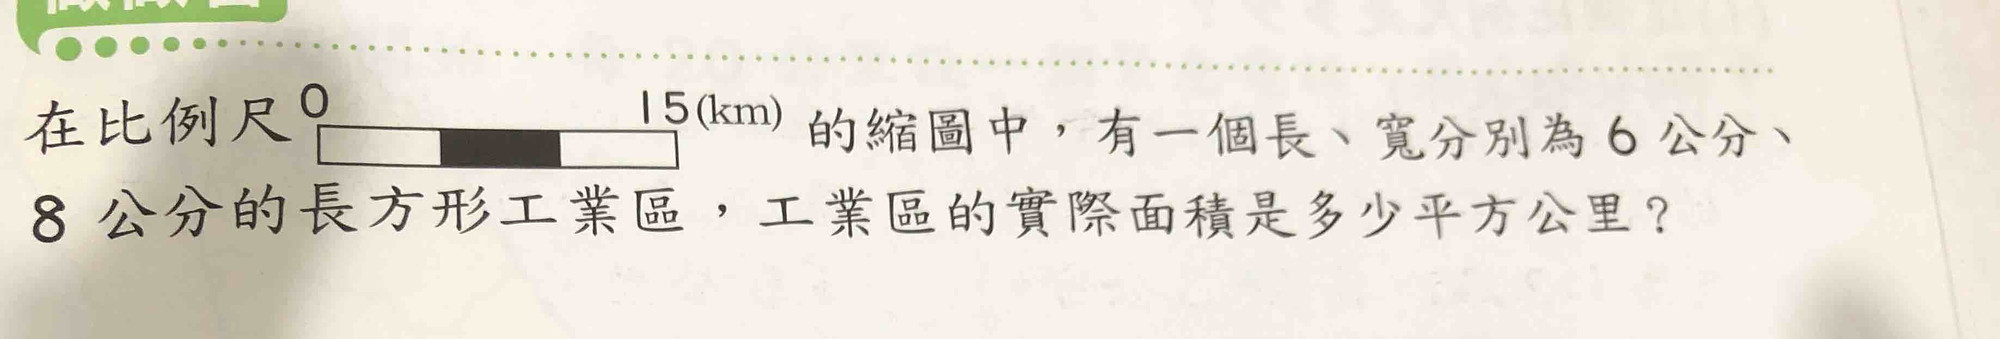 在比例尺 0 15(km) 的縮圖中，有一個長、寬分別為 6 公分、
8 公分的長方形工業區，工業區的實際面積是多少平方公里？